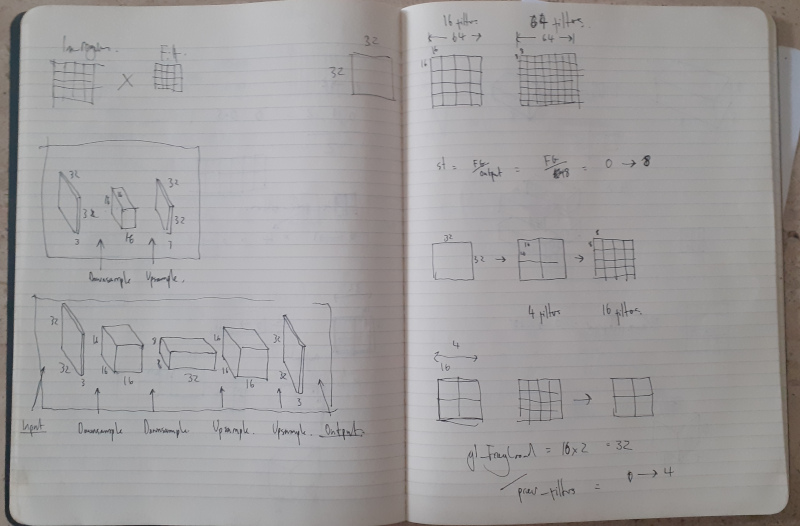 32
32
32
32
3
16
16
16
32
32
3
Downsample Upsample.
32
32
3
16
16
16
8
8
32
16
16
16
32
32
3
Input Downsample Downsample Upsample. Upsample. Output
16 filtros
64
16
16
64 filtros
64
8
8
st = FG/output = FG/ = 0 → 8
32
32
16
16
8
8
4 filtros 16 filtros
4
16
gl_FragCoord = 16 x 2 = 32
/prev_filtros = 0 → 4